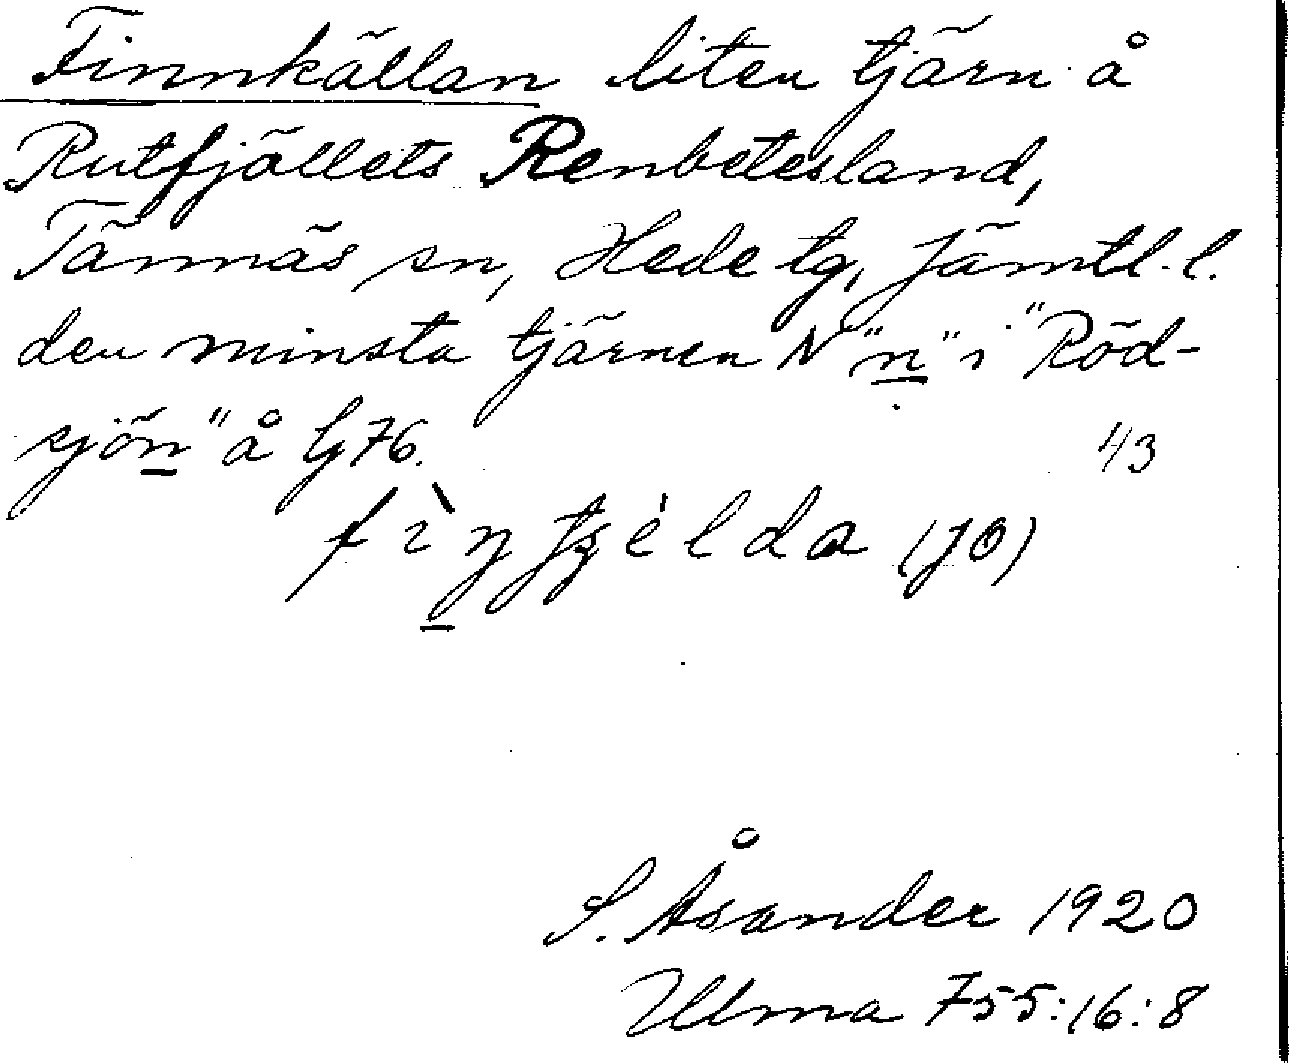 Finnkällan liten tjärn å
Rutfjällets Renbetesland,
Tännäs sn, Hede tg, Jämtl. l.
den minsta tjärnen N "n" i "Röd-
sjön" å G76. 43
(JO)
S. Åsander 1920
Ulma 755:16:8